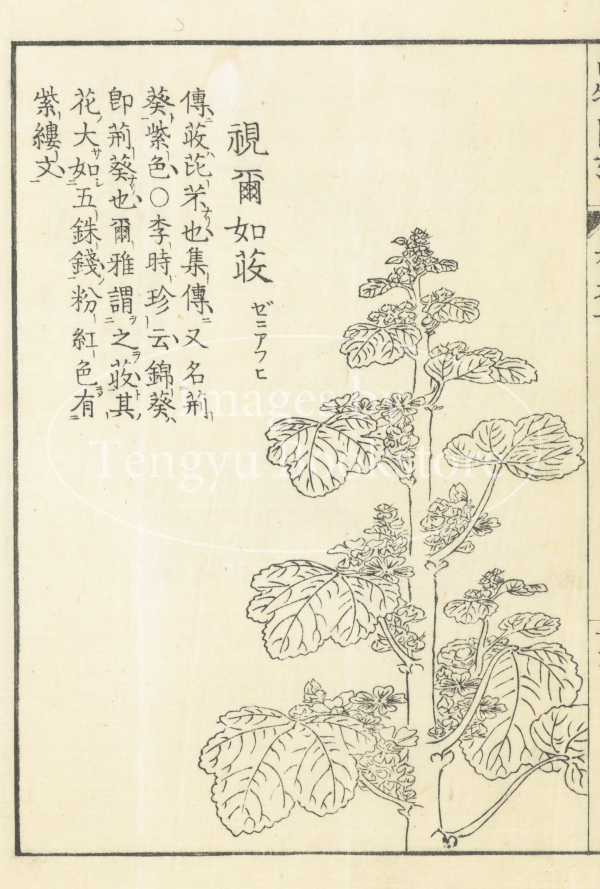 視爾如荍
ゼニアフヒ
傳荍芘芣也集傳又名荊
葵紫色○李時珍云錦葵
卽荊葵也爾雅謂之荍其
花大如五銖錢粉紅色有
紫縷文
Images by
Tengyu Bookstore